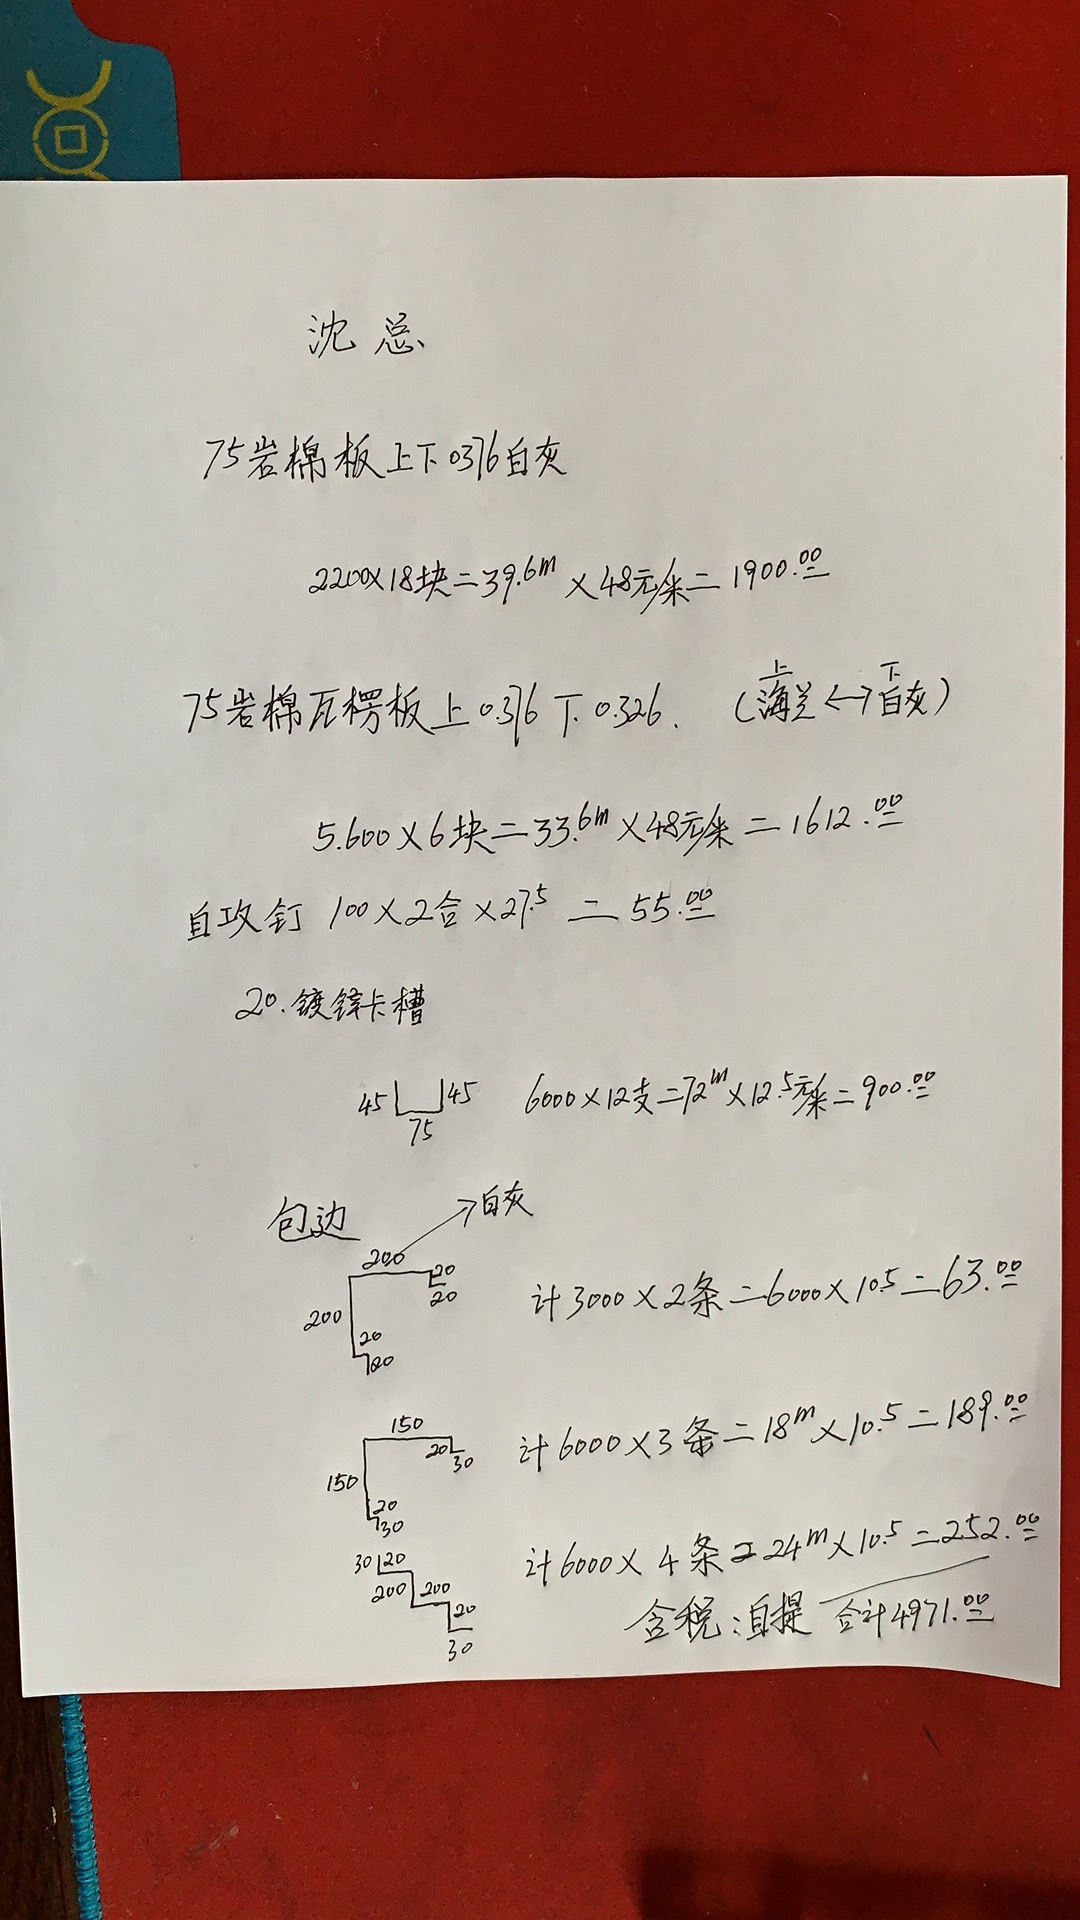 沈总
75岩棉板上下0376白灰
2200×18块=39.6m×48元/米=1900.00
75岩棉瓦楞板上0.376下0.326. (海兰←→白灰)
上 下
5.600×6块=33.6m×48元/米=1612.00
自攻钉 100×2合×27.5=55.00
20.镀锌卡槽
45 45 6000×12支=72m×12.5元/米=900.00
75
包边 →白灰
200
20
20
200
20
20
计3000×2条=6000×10.5=63.00
150
20
30
150
20
30
计6000×3条=18m×10.5=189.00
30 20
200 200
20
30
计6000×4条=24m×10.5=252.00
含税:自提 合计4971.00